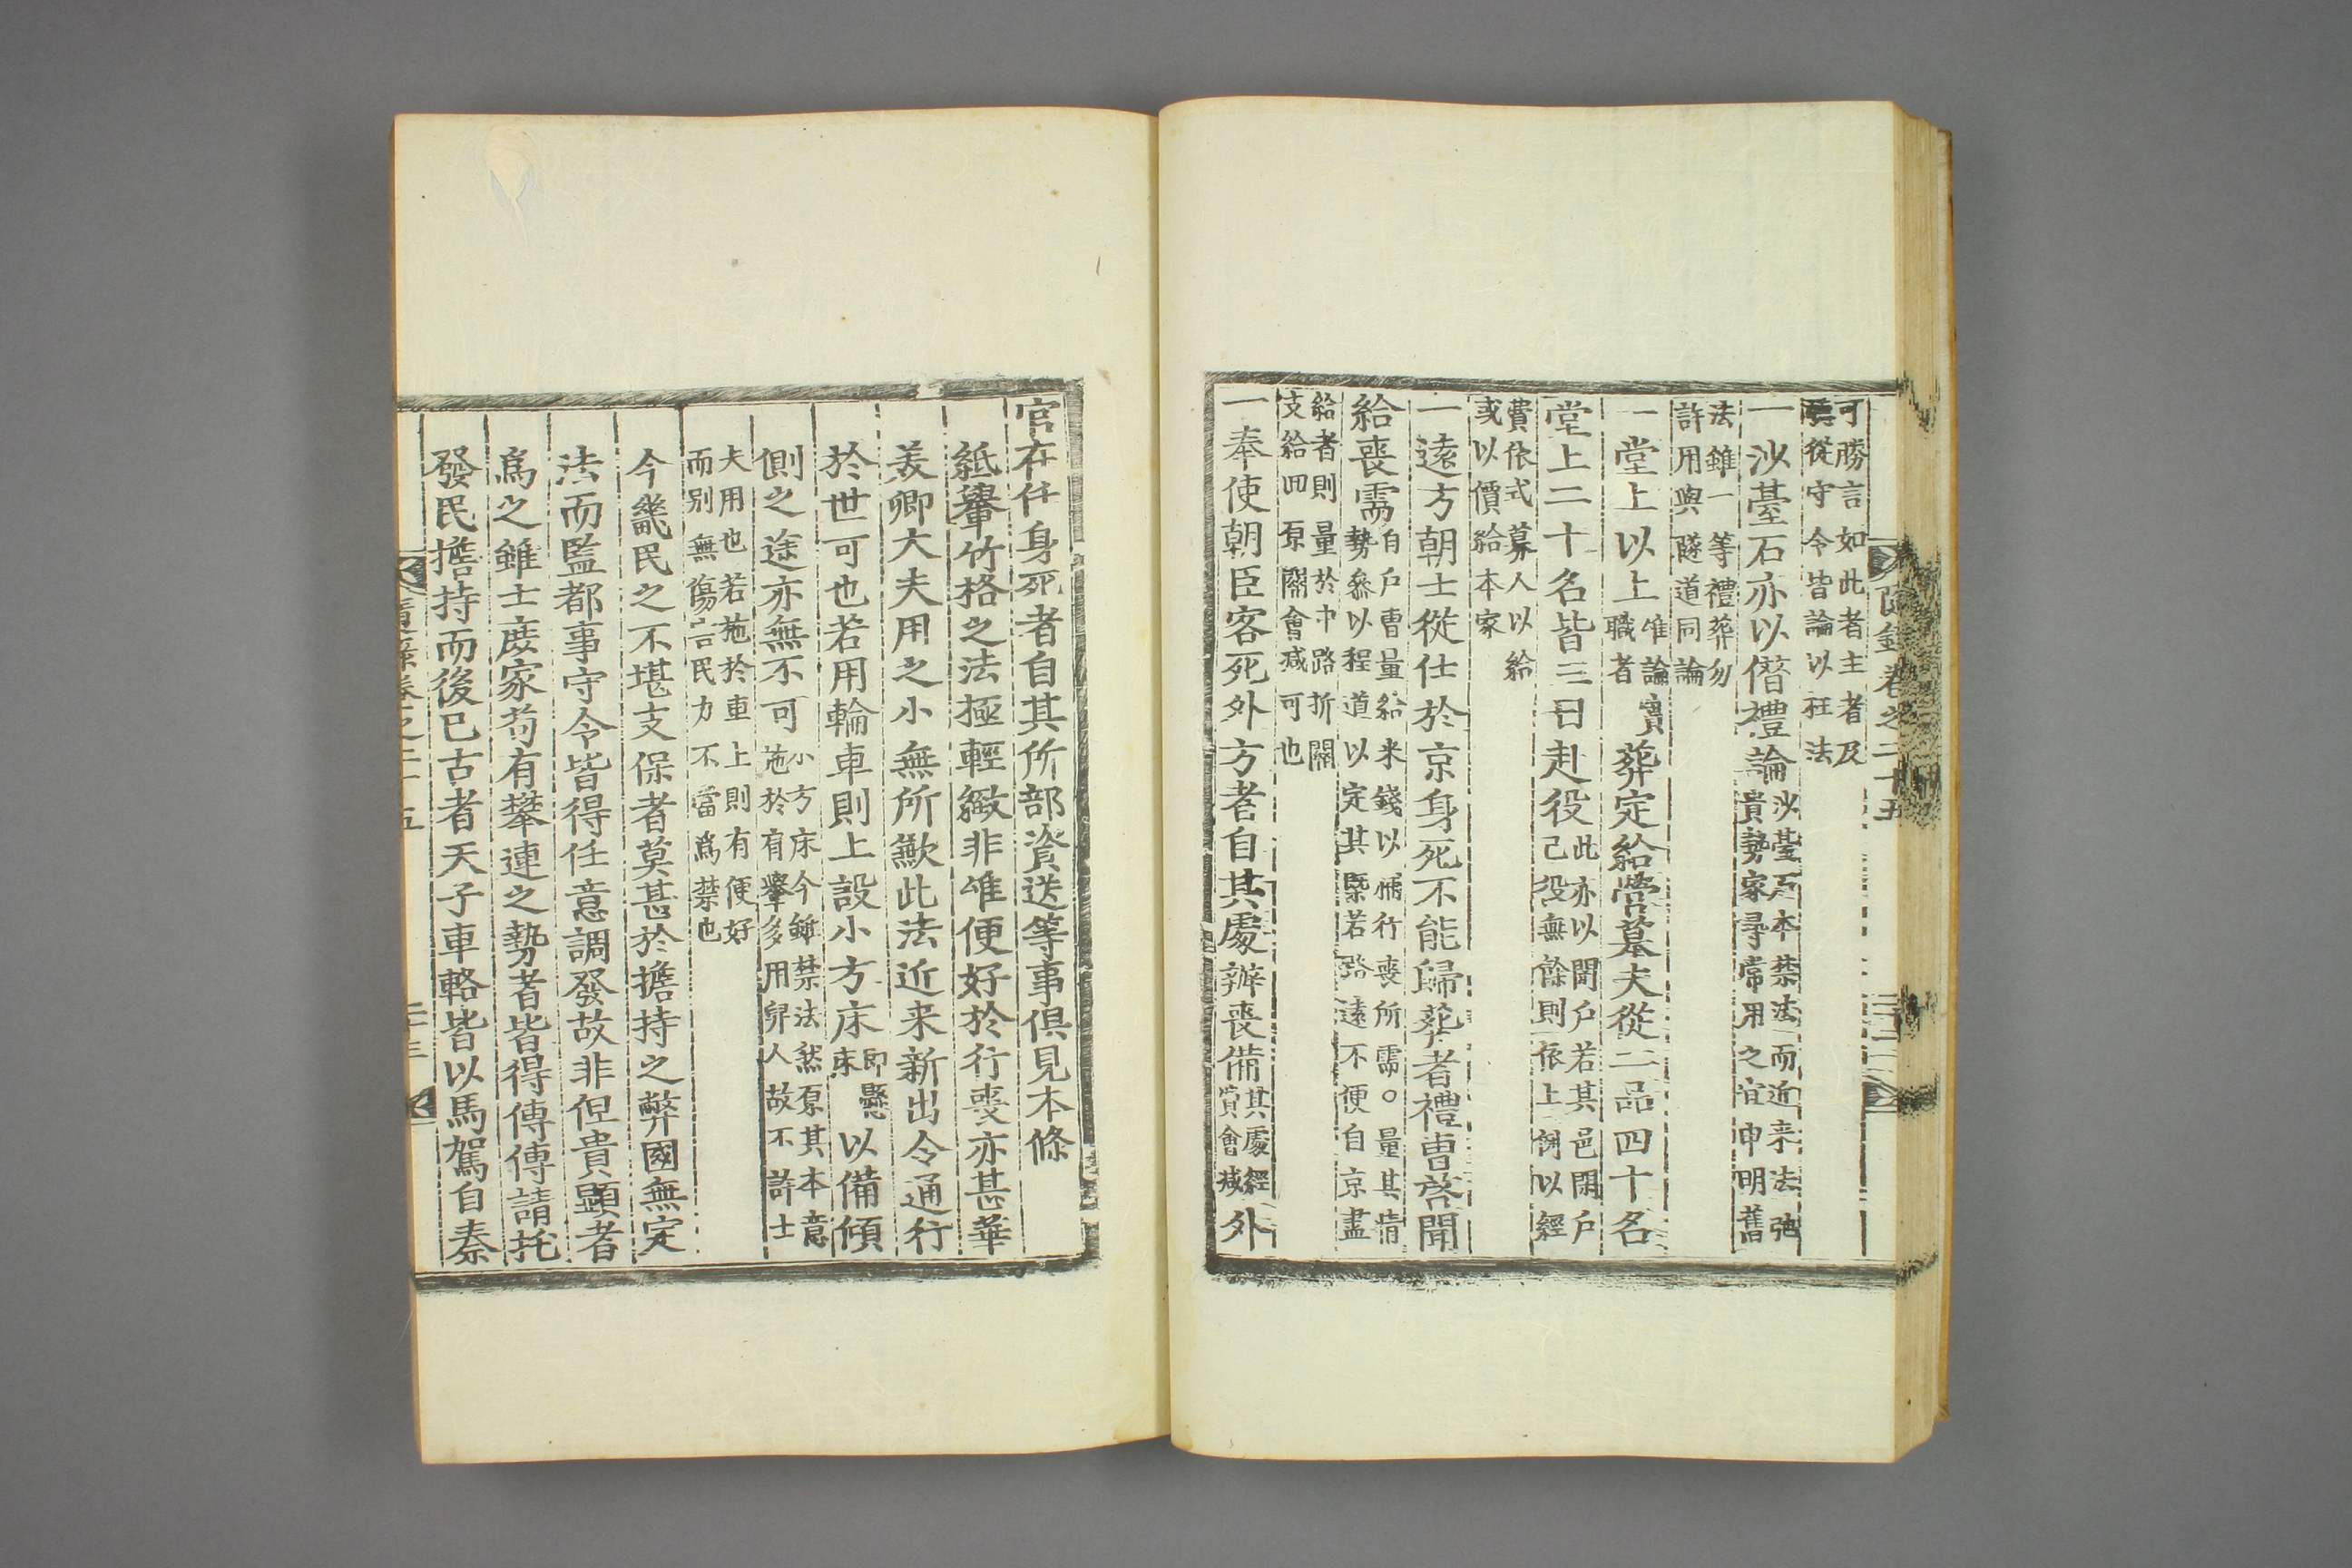 隨錄卷之二十五
二十二
可勝言如此者主者及
從守令皆論以枉法
一沙臺石亦以僭禮論沙臺石本禁法而近來法弛
貴勢家尋常用之宜申明舊
法雖一等禮葬勿
許用與隧道同論
一堂上以上唯論實
職者葬定給營墓夫從二品四十名
堂上二十名皆三日赴役此亦以閑戶若其邑閑戶
己役無餘則依上例以經
費依式募人以給
或以價給本家
一遠方朝士從仕於京身死不能歸葬者禮曹啓聞
給喪需自戶曹量給米錢以備行喪所需○量其情
勢叅以程道以定其槩若路遠不便自京盡
給者則量於中路折關
支給四原關會减可也
一奉使朝臣客死外方者自其處辦喪備其處經
賞會减外
官在任身死者自其所部資送等事俱見本條
紙轝竹格之法極輕緻非唯便好於行喪亦甚華
美卿大夫用之小無所歉此法近来新出令通行
於世可也若用輪車則上設小方床即懸
床以備傾
側之途亦無不可小方床今雖禁法然原其本意
施於有轝多用舁人故不許士
夫用也若施於車上則有便好
而別無傷言民力不當爲禁也
今畿民之不堪支保者莫甚於擔持之弊國無定
法而監都事守令皆得任意調發故非但貴顯者
爲之雖士庶家苟有攀連之勢者皆得傳傳請托
發民擔持而後已古者天子車輅皆以馬駕自秦
隨錄卷之二十五
二十三